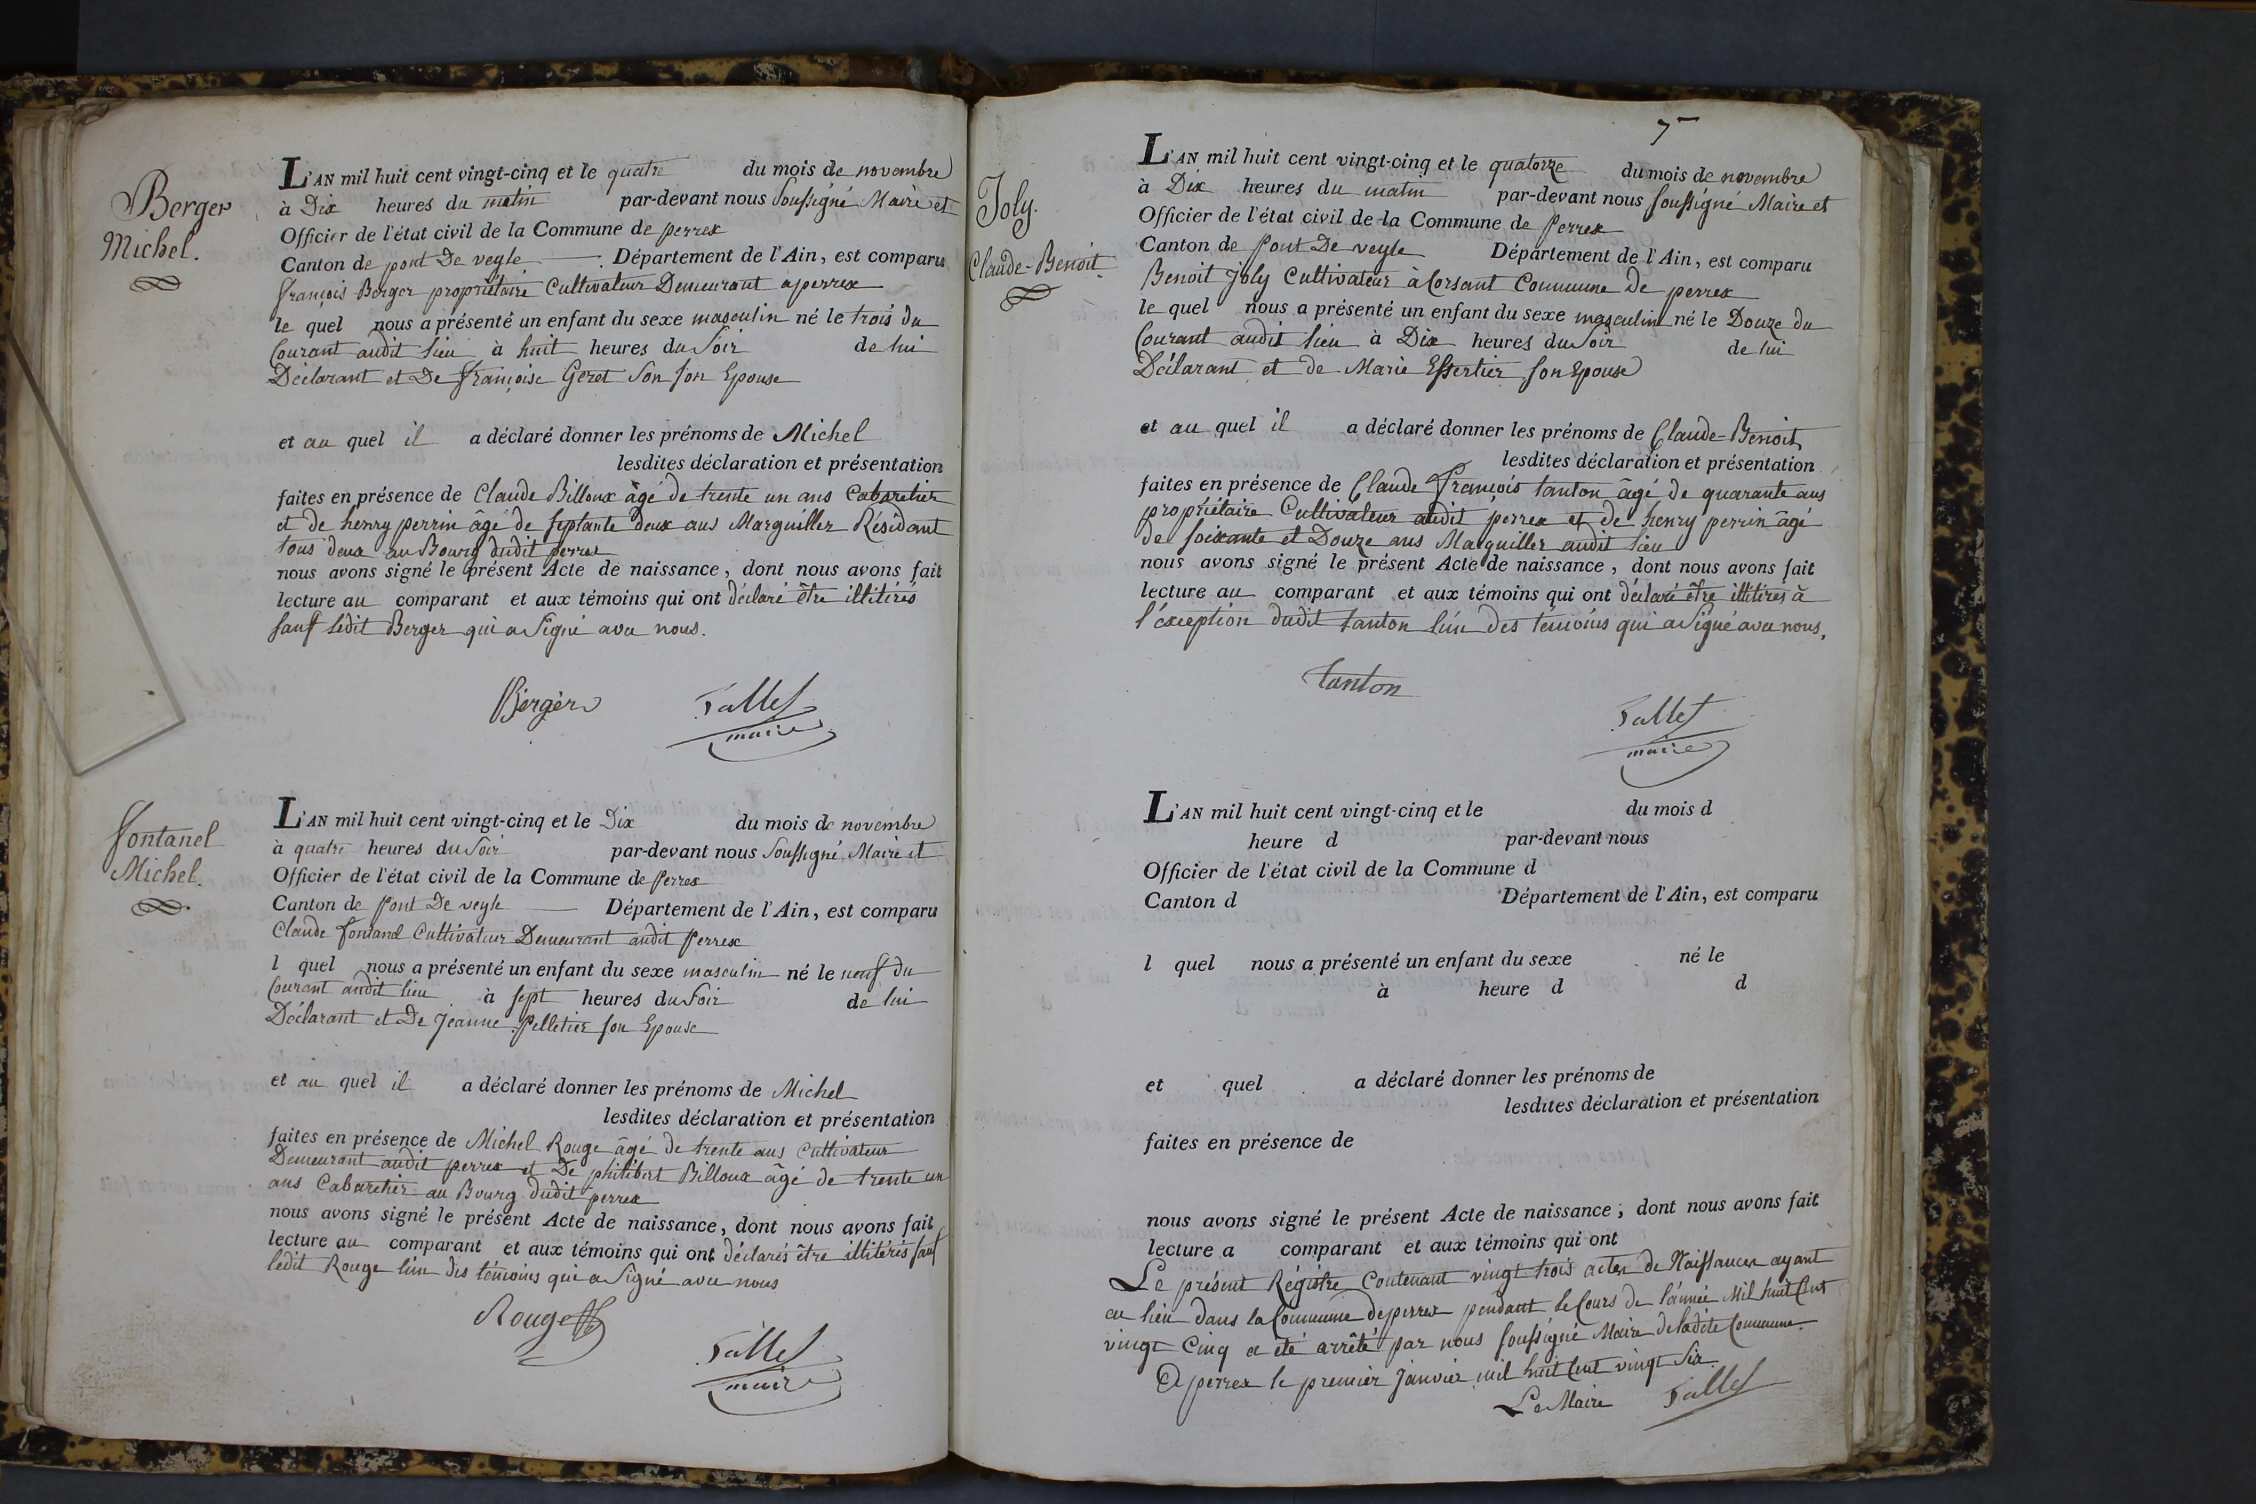 Berger
Michel.
L'AN mil huit cent vingt-cinq et le quatre du mois de novembre
à Dix heures du matin par-devant nous Soussigné Maire et
Officier de l'état civil de la Commune de perrex
Canton de pont De veyle Département de l'Ain, est comparu
françois Berger propriétaire Cultivateur Demeurant a perrex
le quel nous a présenté un enfant du sexe masculin né le trois du
Courant audit lieu à huit heures du Soir de lui
Déclarant et De françoise Geret Son son Epouse
et au quel il a déclaré donner les prénoms de Michel
lesdites déclaration et présentation
faites en présence de Claude Billoux âgé de trente un ans Cabaretier
et de henry perrin âgé de septante deux ans Marguiller Résidant
tous deux au Bourg dudit perrex
nous avons signé le présent Acte de naissance, dont nous avons fait
lecture au comparant et aux témoins qui ont déclaré être illitérés
sauf ledit Berger qui a Signé avec nous.
Berger Tallet
maire
fontanel
Michel.
L'AN mil huit cent vingt-cinq et le Dix du mois de novembre
à quatre heures du Soir par-devant nous Soussigné Maire et
Officier de l'état civil de la Commune de perrex
Canton de pont De veyle Département de l'Ain, est comparu
Claude fontanel Cultivateur Demeurant audit perrex
l quel nous a présenté un enfant du sexe masculin né le neuf du
Courant audit lieu à sept heures du Soir de lui
Déclarant et De Jeanne Pelletier son Epouse
et au quel il a déclaré donner les prénoms de Michel
lesdites déclaration et présentation
faites en présence de Michel Rouge âgé de trente ans Cultivateur
Demeurant audit perrex et De philibert Billoux âgé de trente un
ans Cabaretier au Bourg dudit perrex
nous avons signé le présent Acte de naissance, dont nous avons fait
lecture au comparant et aux témoins qui ont déclarés être illitérés sauf
ledit Rouge l'un des témoins qui a Signé avec nous
Rouge
Tallet
maire
7
Joly.
Claude-Benoit.
L'AN mil huit cent vingt-cinq et le quatorze du mois de novembre
à Dix heures du matin par-devant nous soussigné Maire et
Officier de l'état civil de la Commune de perrex
Canton de pont De veyle Département de l'Ain, est comparu
Benoit Joly Cultivateur à Corsant Commune De perrex
le quel nous a présenté un enfant du sexe masculin né le Douze du
Courant audit lieu à Dix heures du Soir de lui
Déclarant et de Marie Essertier son Epouse
et au quel il a déclaré donner les prénoms de Claude-Benoit
lesdites déclaration et présentation
faites en présence de Claude François tanton âgé de quarante ans
propriétaire Cultivateur audit perrex et de henry perrin âgé
de soixante et Douze ans Marguiller audit lieu
nous avons signé le présent Acte de naissance, dont nous avons fait
lecture au comparant et aux témoins qui ont déclaré être illitérés à
l'éxception dudit tanton l'un des témoins qui a Signé avec nous.
tanton
Tallet
maire
L'AN mil huit cent vingt-cinq et le du mois d
heure d par-devant nous
Officier de l'état civil de la Commune d
Canton d Département de l'Ain, est comparu
l quel nous a présenté un enfant du sexe né le
à heure d d
et quel a déclaré donner les prénoms de
lesdites déclaration et présentation
faites en présence de
nous avons signé le présent Acte de naissance, dont nous avons fait
lecture a comparant et aux témoins qui ont
Le présent Régistre Contenant vingt trois actes de Naissances ayant
eu lieu dans la Commune de perrex pendant le Cours de l'année Mil huit Cent
vingt Cinq a été arrêté par nous soussigné Maire de ladite Commune.
A perrex le premier Janvier mil huit Cent vingt Six.
Le Maire Tallet